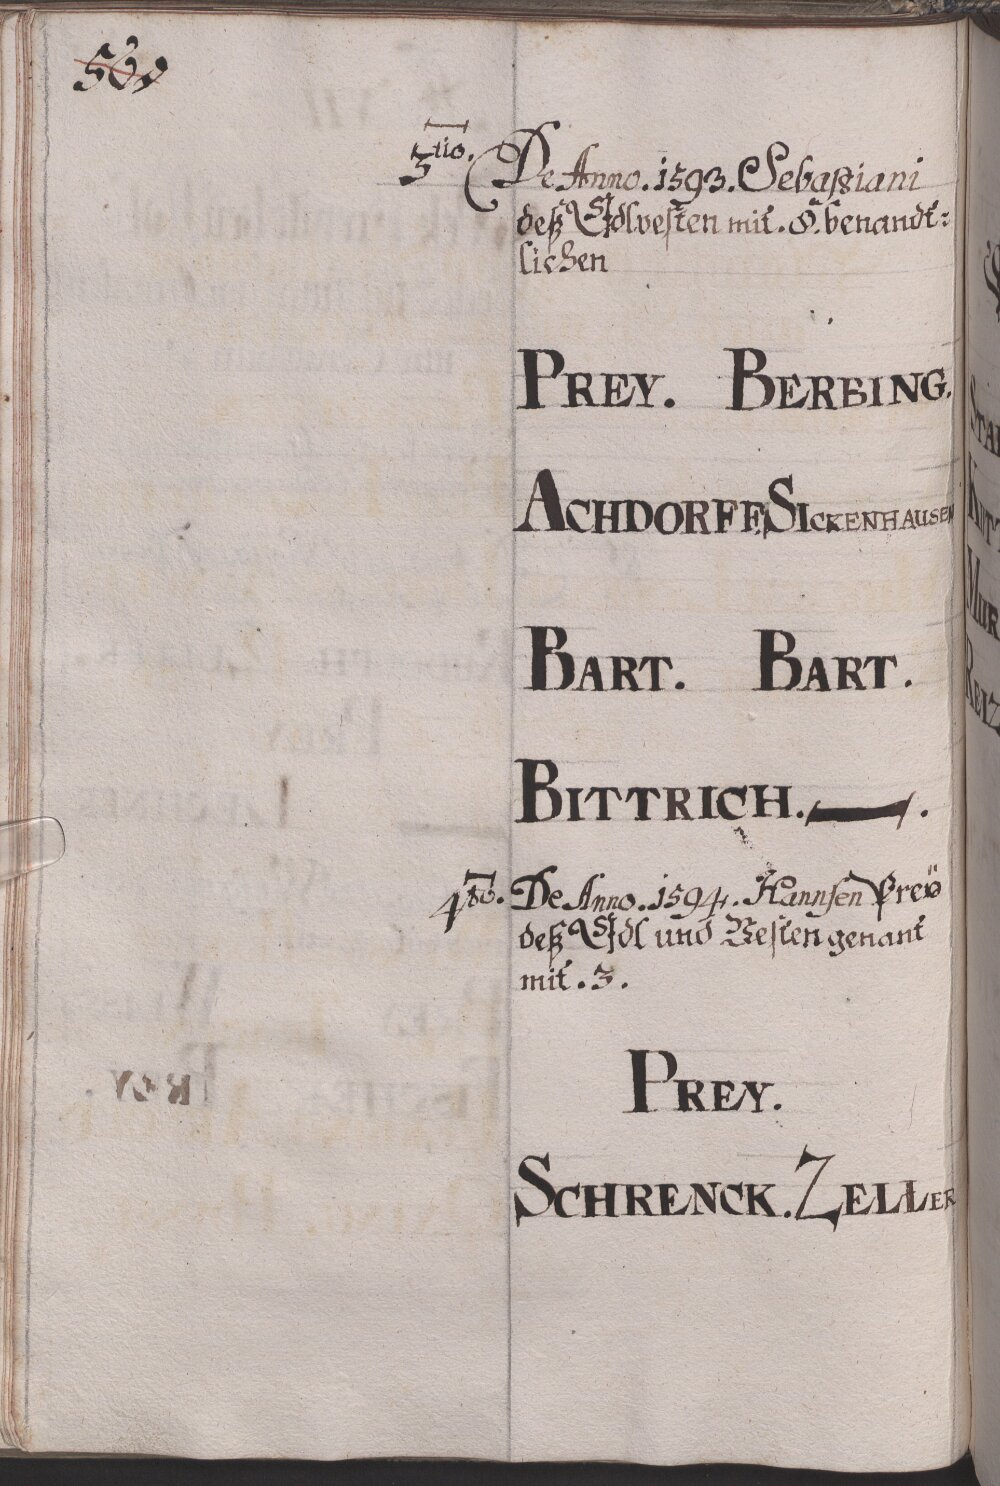 3tio. De Anno. 1593. Sebastiani
deß Edlvesten mit. 8. benandt:
lichen
PREY. BERBING.
ACHDORFF. SICKENHAUSEN
BART. BART.
BITTRICH. —.
4to. De Anno. 1594. Hannsen Preÿ
deß Edl und Vesten genant
mit. 3.
PREY.
SCHRENCK. ZELLER